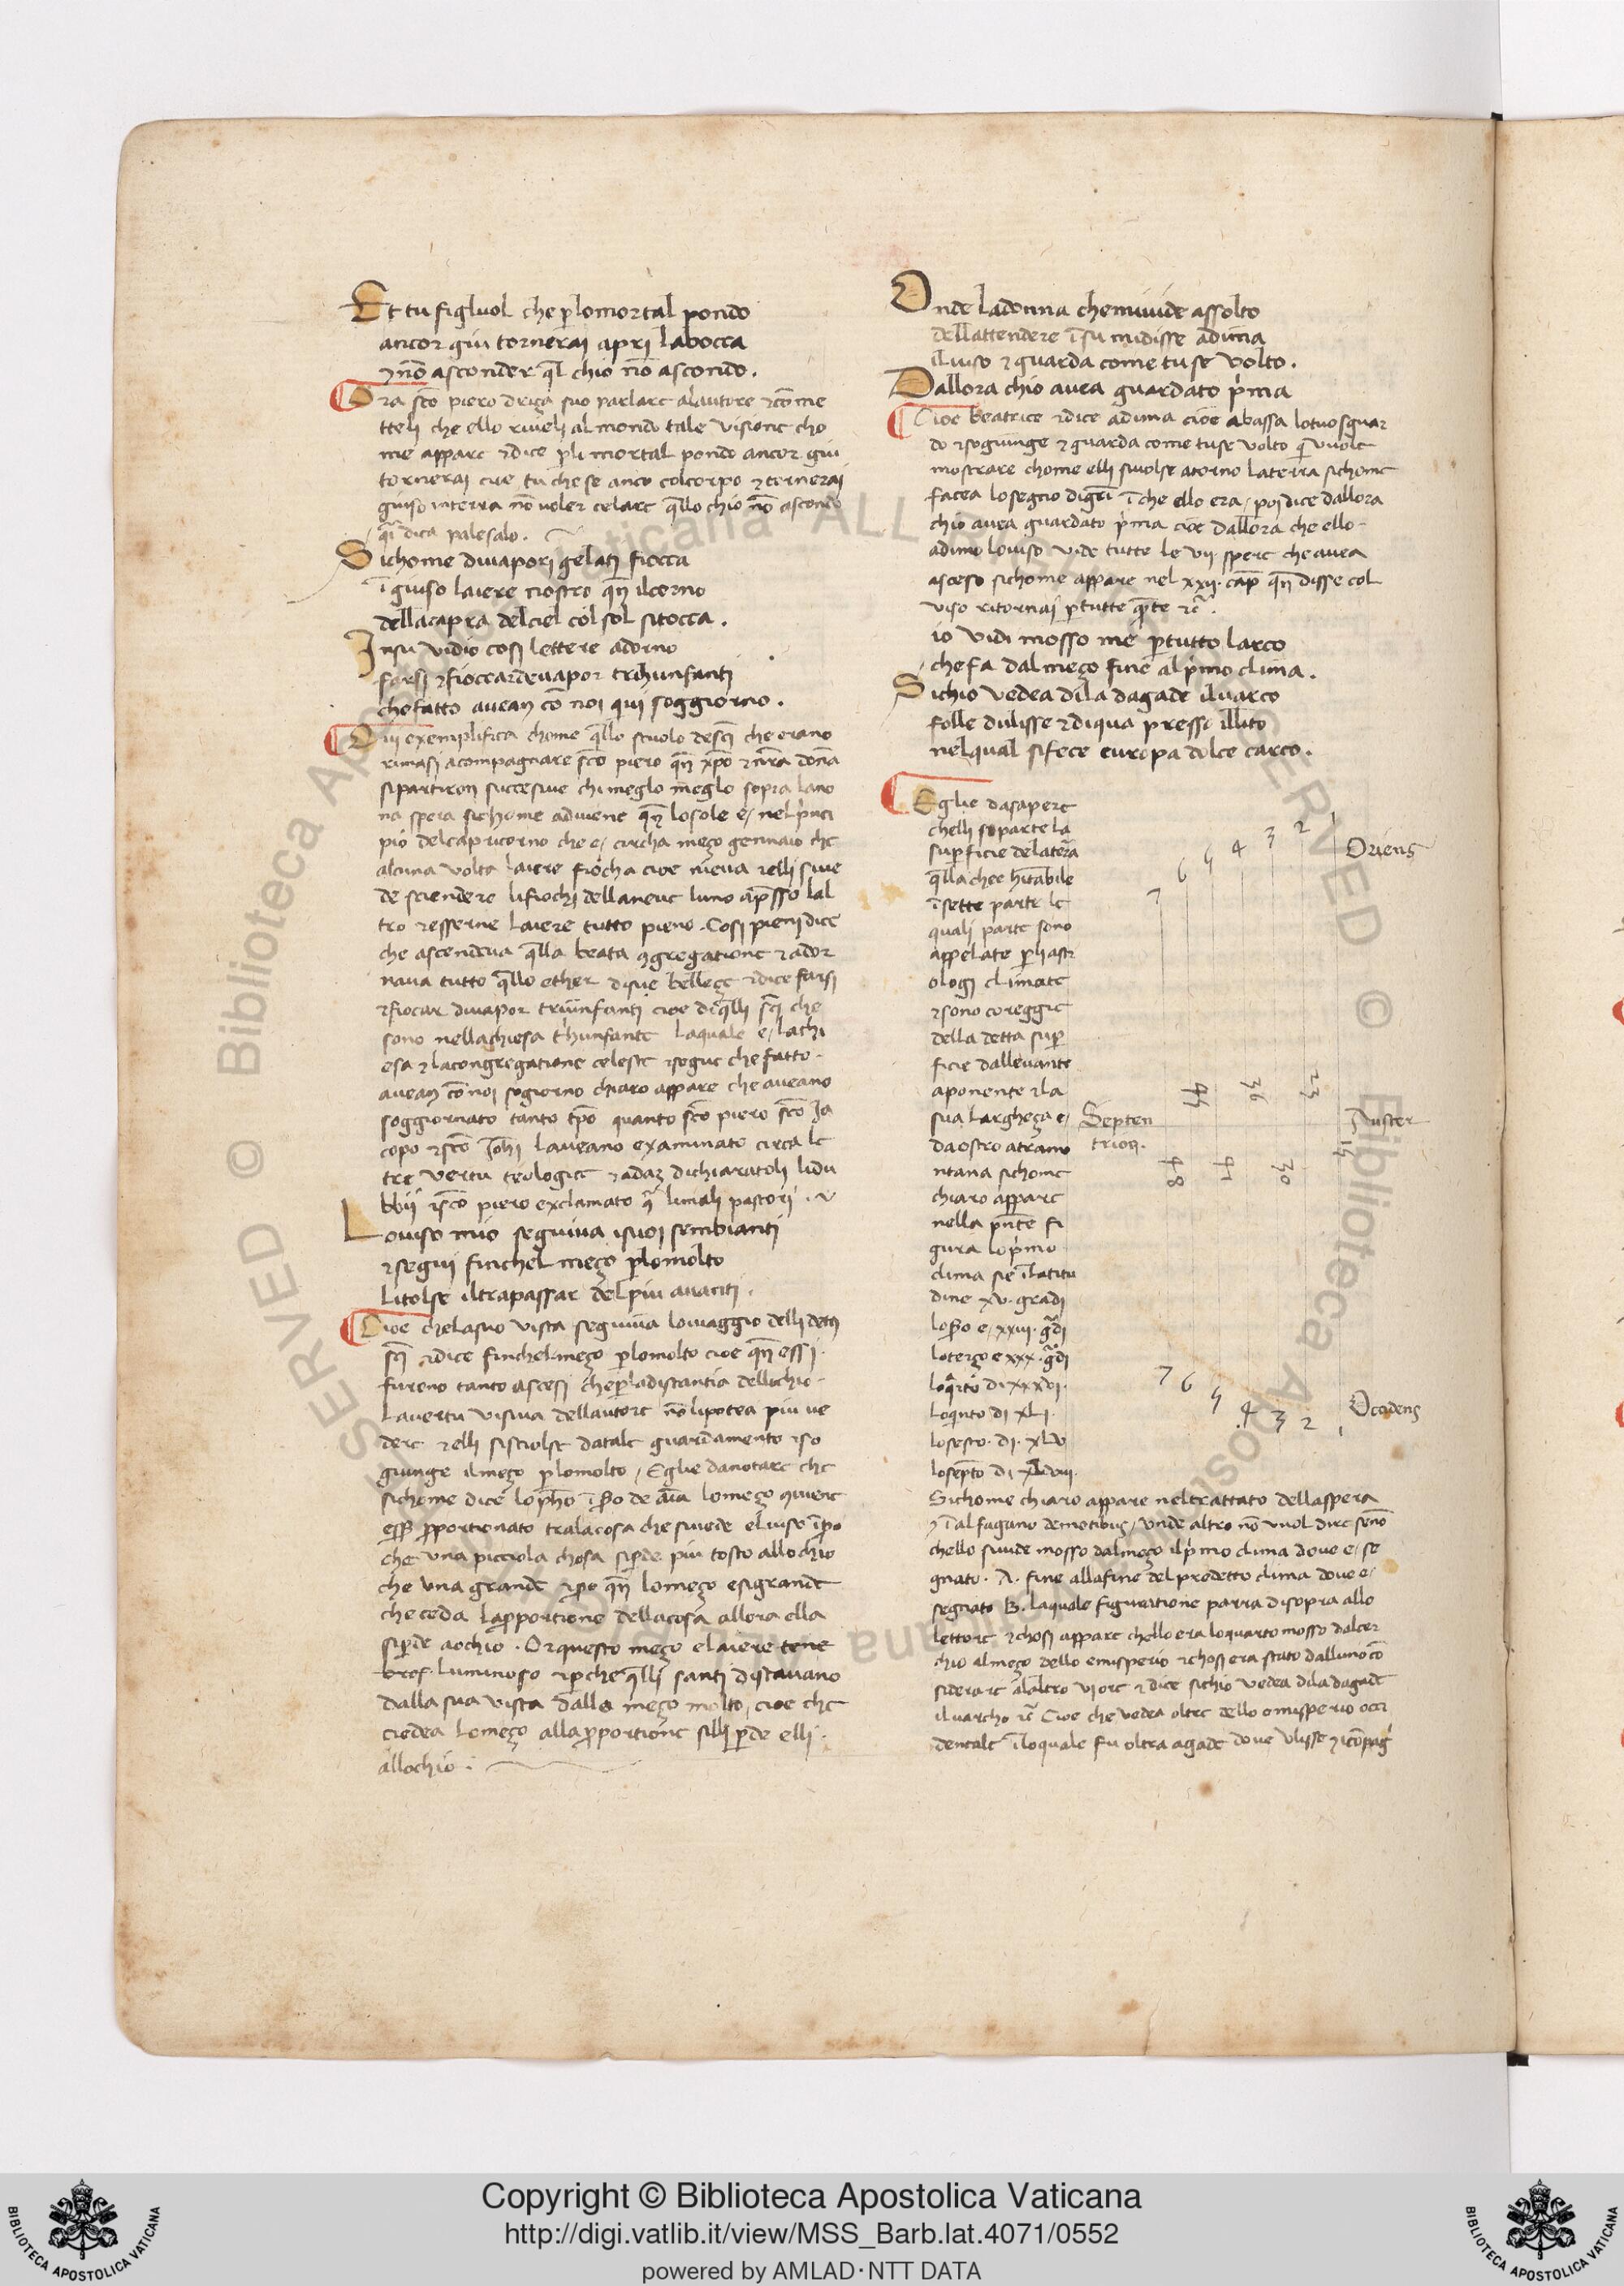 Et tu figluol che p̱ lo mortal pondo
ancor giu tornerai apri la bocca
⁊ nō asconder ql̄ chio nō ascondo.
Ora sc̄o piero driça suo parlare alautore ⁊ cōme
tteli che ello riueli al mondo tale visione cho
me appare ⁊ dice p̱ li mortal pondo ancor giu
tornerai cioe tu che se anco col corpo ⁊ tornerai
giuso in terra nō uoler celare q̄llo chio nō ascondo
q̄i dica palesalo.
Sichome di uapori gelati fiocca
ī giuso laiere nostro qn̄ il corno
della capra del ciel col sol si tocca.
In su vidio cosi lettere adorno
farsi ⁊ fioccar deuapor trihunfanti
che fatto avean cō noi qui soggiorno.
Qui exemplifica chome q̄llo stuolo de sc̄i che erano
rimasi acompagnare sc̄o piero qn̄ xp̄o ⁊ nr̄a dōna
si partiron succesiue chi meglo meglo sopra la no
na spera sichome adiuene qn̄ lo sole e, nel p̄nci
pio del capricorno che e, circha meço gennaio che
alcuna volta laiere fiocha cioe nieua ⁊ elli si ue
de sciendere li fiochi della neue luno ap̄sso lal
tro ⁊ esserne laiere tutto pieno. Cosi pieni dice
che ascendeua q̄lla beata ɔgregatione ⁊ ador
naua tutto q̄llo ether di sue belleçe ⁊ dice farsi
⁊ fiocar di uapor triūnfanti cioe de q̄lli sc̄i che
sono nella chiesa trihunfante la quale e, la chi
esa ⁊ la congregatione celeste ⁊ segue che fatto
avean cō noi sogiorno chiaro appare che aveano
soggiornato tanto tp̄o quanto sc̄o piero sc̄o Ja
copo ⁊ sc̄o Joh̄i laveano examinato circa le
tre vertu teologice ⁊ adaȝ dichiaratoli li du
bbii ⁊ sc̄o piero exclamato q̄ li mali pastori
Lo uiso mio seguiua i suoi sembianti
⁊ segui finchel meço p̱ lo molto
li tolse il trapassar del piu auanti.
Cioe che la suo vista seguiua lo uiaggio delli detti
sc̄i ⁊ dice finchel meço p̱ lo molto cioe qn̄ essi
furono tanto ascesi che p̱ la distantia dellochio
la uertu visiua dellautore nō li potea piu ue
dere ⁊ elli si sciolse da tale guardamento ⁊ so
giunge il meço p̱ lo molto, Egli e da notare che
sichome dice lo ph̄o ī s̄o de aīa lo meço ɔuiene
ess̄ p̱portionato tra la cosa che si uede el uiso īp̱o
che una picciola chosa si p̱de piu tosto allochio
che una grande ⁊ p̱o qn̄ lo meço e si grande
che ceda la p̱portione della cosa allora ella
si p̱de aochio. Or questo meço e laiere tene
broso luminoso ⁊ p̱che q̄lli santi distauano
dalla sua vista dallo meço molto, cioe che
ciedea lo meço alla p̱portione si li p̱de elli
allochio.
Onde la donna che mi uide assolto
dellattendere ī su mi disse aduna
il uiso ⁊ guarda come tu se volto.
Dallora chio auea guardato p̄ma
Cioe beatrice ⁊ dice aduna cioe abassa lo tuo sguar
do ⁊ sogiunge ⁊ guarda come tu se volto q̄ vuole
mostrare chome elli si uolse atorno la terra sichome
facea lo segno di gem̄i ī che ello era, poi dice dallora
chio auea guardato p̄ma cioe dallora che ello
aduno lo uiso vide tutte le vii spere che auea
asceso sichome appare nel xxii. cap̄ qn̄ disse col
viso ritornai p̱ tutte q̄nte ⁊c̄.
io vidi mosso me p̱ tutto larco
che fa dal meço fine al p̄mo clima.
Sichio vedea di la da gade il uarco
folle dulisse ⁊ di qua presso il lito
nel qual si fece europa dolce carco.
Egli e da sapere
chelli si parte la
sup̱ficie de la terra
q̄lla che e hītabile
ī sette parte le
quali parte sono
appelate p̱ li astr
ologi climate
⁊ sono coreggie
della detta sup̱
ficie da lleuante
a ponente ⁊ la
sua largheça e,
da ostro a tramo
ntana sichome
chiaro appare
nella pn̄te fi
gura lo p̄mo
clima si e ī latitu
dine xv. gradi
lo s̄o e, xxiii. gradi
lo terço e xxx. gradi
lo q̄rto di xxxvi.
lo qīnto di xLi.
lo sesto. di. xLv
lo sep̄to di xLviii.
1 2 3 4 5 6 7
Oriens
Septen
trion.
Auster
15 23 30 36 41 45 48
7 6 5 4 3 2 1
Occidens
Sichome chiaro appare nel trattato della spera
⁊ ī alfagano de motibus, vnde altro nō vuol dire senō
chello si uide mosso dal meço il p̄mo clima dove e, se
gnato. A. fine alla fine del predetto clima doue e,
segnato B. la quale figuratione parra di sopra allo
lettore ⁊ chosi appare chello era lo quarto mosso dal cer
chio al meço dello emisperio ⁊ chosi era stato dalluno cō
siderare allaltro vi ore ⁊ dice sichio vedea di la da gade
il uarcho ⁊c̄ Cioe che vedea oltre dello emisperio occi
dentale ī lo quale fu oltra a gade doue Vlisse ⁊ i cōpaḡ
Copyright © Biblioteca Apostolica Vaticana
http://digi.vatlib.it/view/MSS_Barb.lat.4071/0552
powered by AMLAD·NTT DATA